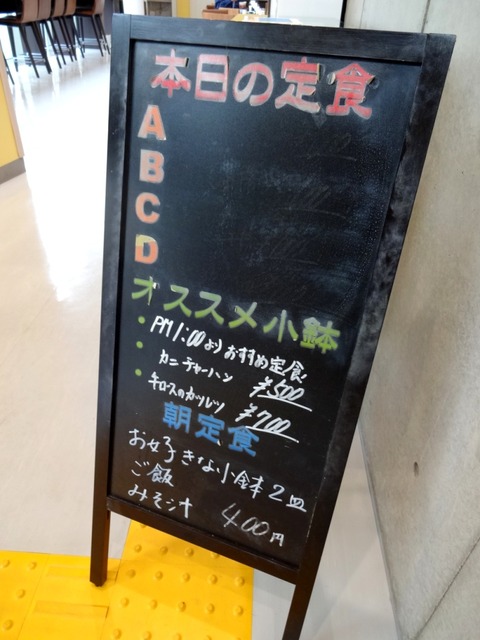 本日の定食
A
B
C
D
オススメ小鉢
・PM1:00よりおすすめ定食
・カニチャーハン ¥500
・牛ロースのカツレツ ¥700
朝定食
お好きな小鉢2皿
ご飯
みそ汁 400円